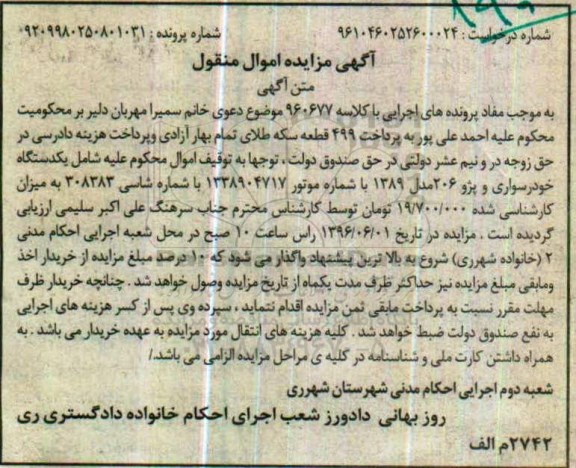 شماره درخواست : ۹۶۱۰۴۶۰۲۵۲۶۰۰۰۲۴ شماره پرونده : ۹۲۰۹۹۸۰۲۵۰۸۰۱۰۳۱
آگهی مزایده اموال منقول
متن آگهی
به موجب مفاد پرونده های اجرایی با کلاسه ۹۶۰۶۷۷ موضوع دعوی خانم سمیرا مهربان دلیر بر محکومیت
محکوم علیه احمد علی پور به پرداخت ۴۹۹ قطعه سکه طلای تمام بهار آزادی وپرداخت هزینه دادرسی در
حق زوجه در و نیم عشر دولتی در حق صندوق دولت ، توجها به توقیف اموال محکوم علیه شامل یکدستگاه
خودرسواری و پژو ۲۰۶مدل ۱۳۸۹ با شماره موتور ۱۳۳۸۹۰۴۷۱۷ با شماره شاسی ۳۰۸۳۸۳ به میزان
کارشناسی شده ۱۹/۷۰۰/۰۰۰ تومان توسط کارشناس محترم جناب سرهنگ علی اکبر سلیمی ارزیابی
گردیده است . مزایده در تاریخ ۱۳۹۶/۰۶/۰۱ راس ساعت ۱۰ صبح در محل شعبه اجرایی احکام مدنی
۲ (خانواده شهرری) شروع به بالا ترین پیشنهاد واگذار می شود که ۱۰ درصد مبلغ مزایده از خریدار اخذ
ومابقی مبلغ مزایده نیز حداکثر ظرف مدت یکماه از تاریخ مزایده وصول خواهد شد . چنانچه خریدار ظرف
مهلت مقرر نسبت به پرداخت مابقی ثمن مزایده اقدام نتماید ، سپرده وی پس از کسر هزینه های اجرایی
به نفع صندوق دولت ضبط خواهد شد . کلیه هزینه های انتقال مورد مزایده به عهده خریدار می باشد . به
همراه داشتن کارت ملی و شناسنامه در کلیه ی مراحل مزایده الزامی می باشد./
شعبه دوم اجرایی احکام مدنی شهرستان شهرری
روز بهانی دادورز شعب اجرای احکام خانواده دادگستری ری
۲۷۴۲/م الف